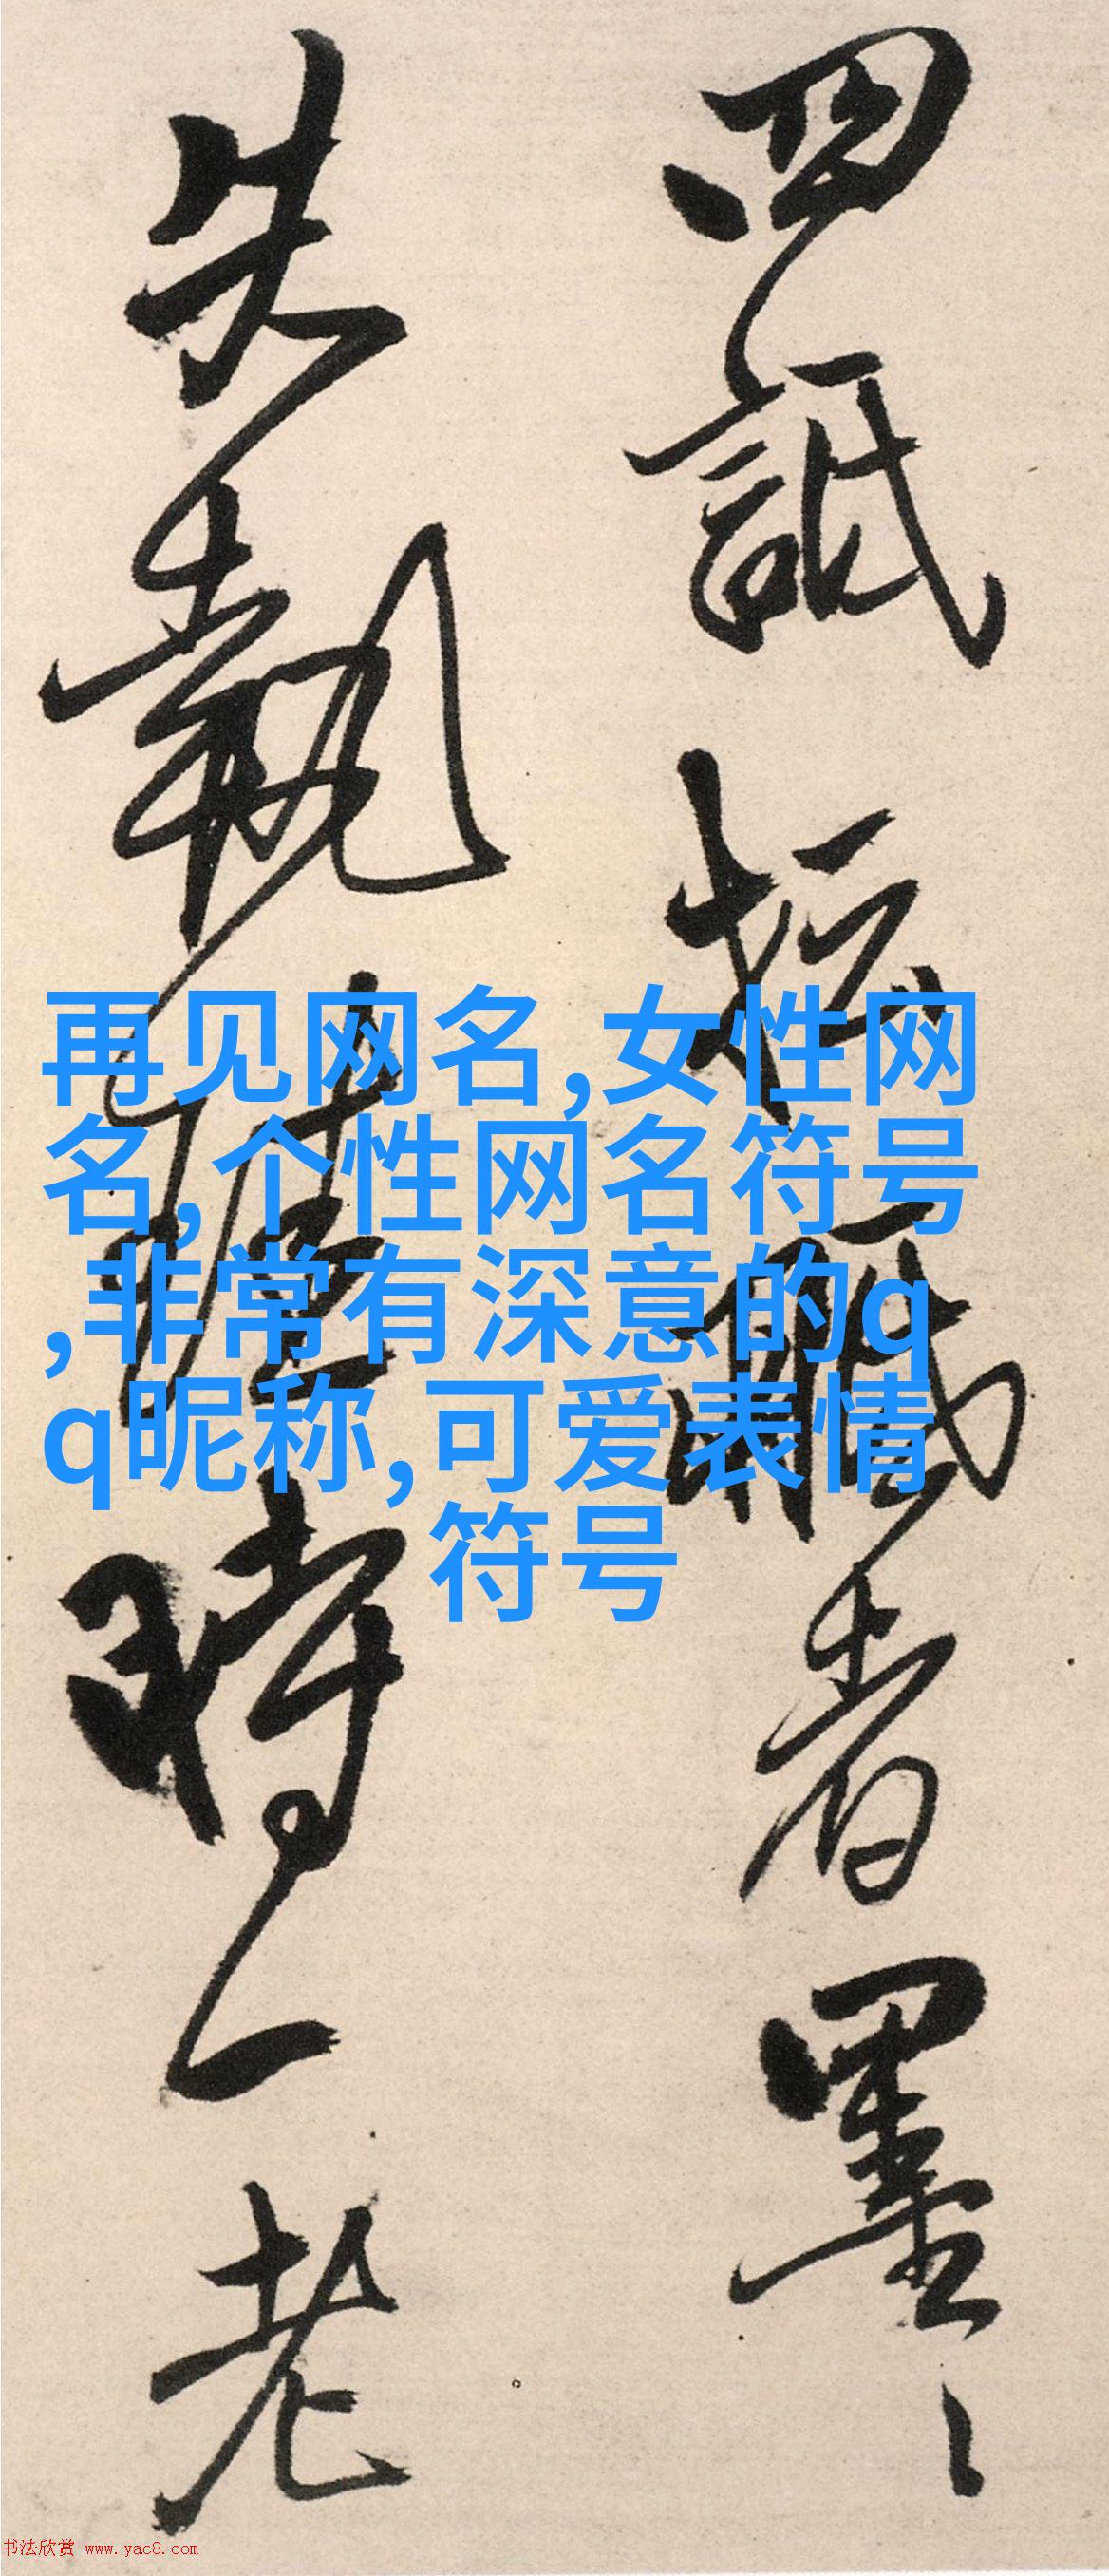 再见网名,女性网
名,个性网名符号
,非常有深意的q
q昵称,可爱表情
符号
四
者墨
失執
時
老
书法欣赏 www.yac8.com